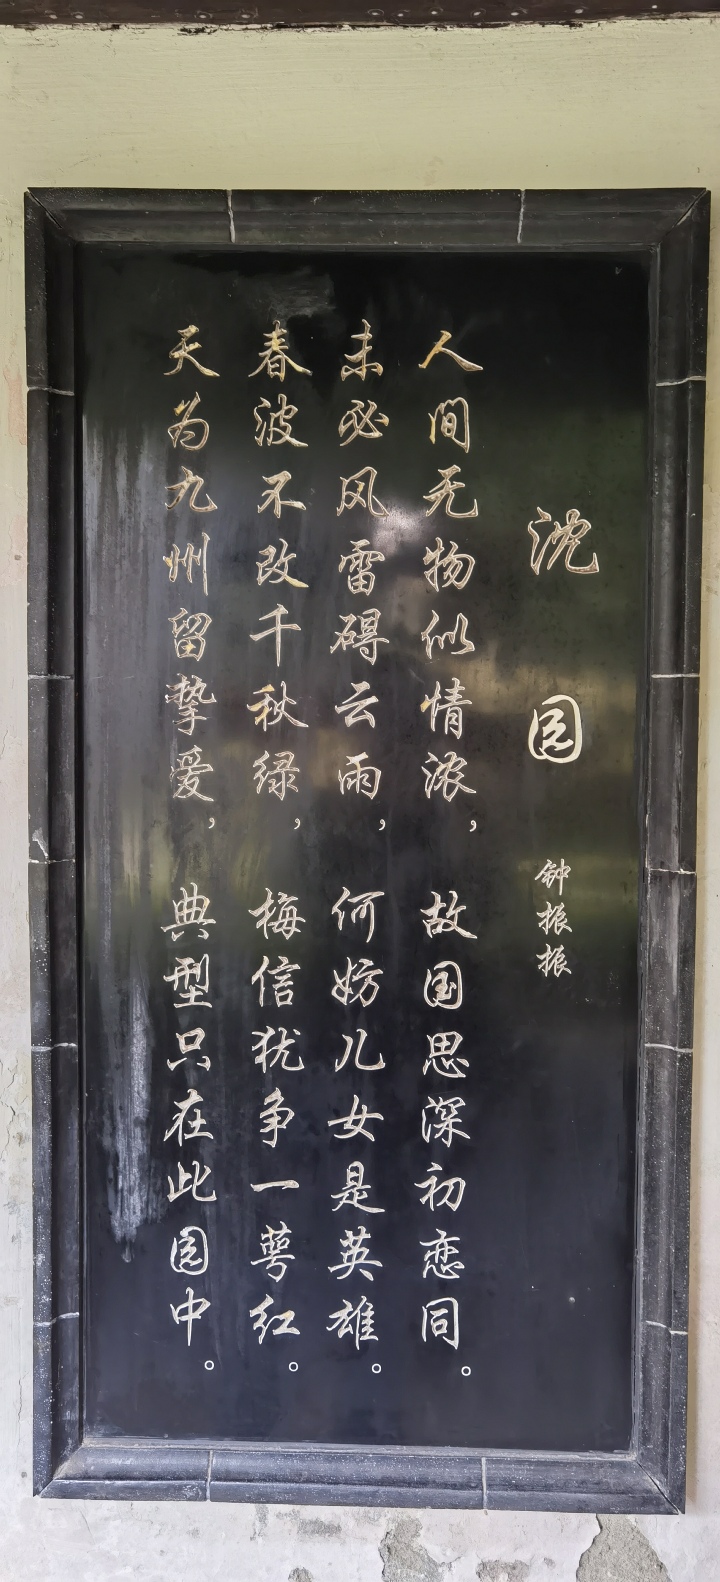 沈园
钟振振
人间无物似情浓，故国思深初恋同。
未必风雷碍云雨，何妨儿女是英雄。
春波不改千秋绿，梅信犹争一萼红。
天为九州留挚爱，典型只在此园中。